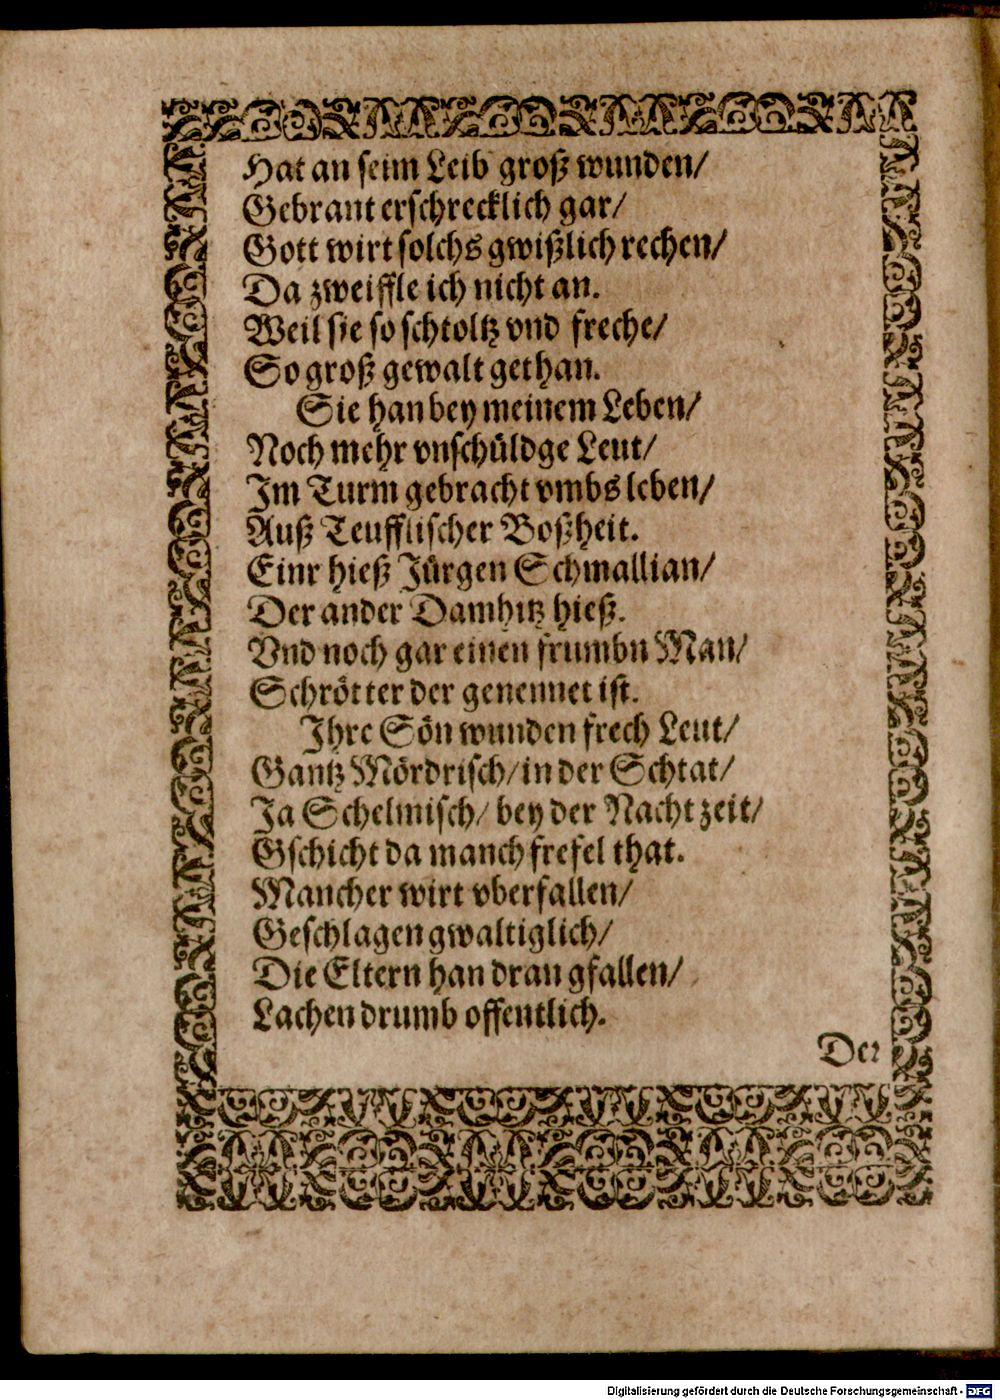 Hat an seim Leib groß wunden/
Gebrant erschrecklich gar/
Gott wirt solchs gwißlich rechen/
Da zweiffle ich nicht an.
Weil sie so schtoltz vnd freche/
So groß gewalt gethan.
Sie han bey meinem Leben/
Noch mehr vnschüldge Leut/
Im Turm gebracht vmbs leben/
Auß Teufflischer Boßheit.
Einr hieß Jürgen Schmallian/
Der ander Damhitz hieß.
Vnd noch gar einen frumbn Man/
Schrötter der genennet ist.
Ihre Sön wunden frech Leut/
Gantz Mördrisch/ in der Schtat/
Ja Schelmisch/ bey der Nacht zeit/
Gschicht da manch frefel that.
Mancher wirt vberfallen/
Geschlagen gwaltiglich/
Die Eltern han dran gfallen/
Lachen drumb offentlich.
Der
Digitalisierung gefördert durch die Deutsche Forschungsgemeinschaft - DFG